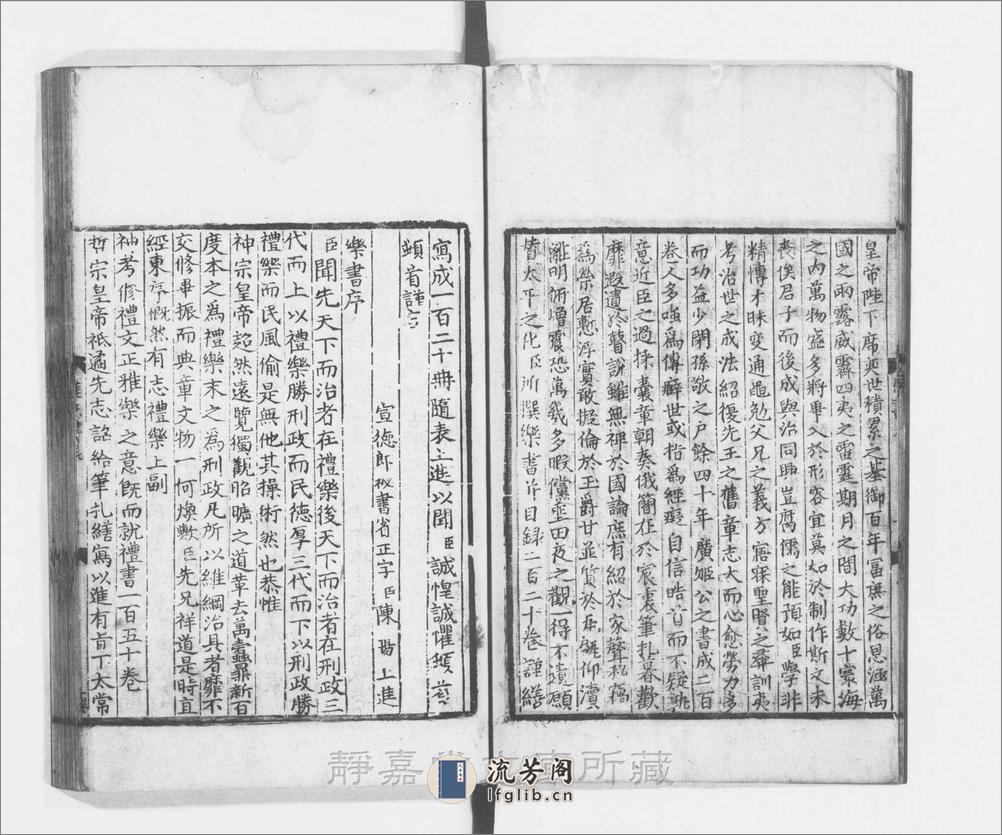 皇帝陛下席奕世積累之基御百年富庶之俗恩涵萬
國之雨露威霽四夷之雷霆期月之間大功數十寰海
之內萬物盛多將畢入於形容宜莫如於制作斯文未
喪俟君子而後成與治同興豈腐儒之能預如臣學非
精博才昧變通黽勉父兄之義方寤寐聖賢之彝訓夷
考治世之成法紹復先王之舊章志大而心愈勞力多
而功益少閉孫敬之戶餘四十年廣姬公之書成二百
卷人多嗤為傳癖世或指為經癡自信皓首而不疑
意近臣之過採囊章朝奏俄簡在於宸衷筆札暮歡
靡遐遺於瞽說雖無裨於國論庶有紹於家聲
為榮居慙浮實敢擬倫於玉爵甘並質於仰瀆
離明俯增震恐萬幾多暇儻垂囙夜之觀一得不遺願
替太平之化臣所撰樂書并目錄二百二十卷謹繕
寫成一百二十冊隨表上進以聞臣誠惶誠懼頓首
頓首謹言
宣德郎秘書省正字臣陳暘上進
樂書序
臣聞先天下而治者在禮樂後天下而治者在刑政三
代而上以禮樂勝刑政而民德厚三代而下以刑政勝
禮樂而民風偷是無他其操術然也恭惟
神宗皇帝超然遠覽獨觀昭曠之道革去萬蠹鼎新百
度本之為禮樂末之為刑政凡所以維綱治具者靡不
交修畢振而典章文物一何煥歟臣先兄祥道是時直
經東序慨然有志禮樂上副
神考修禮文正雅樂之意既而就禮書一百五十卷
哲宗皇帝祗遹先志詔給筆札繕寫以進有旨下太常
靜嘉堂文庫所藏
流芳阁
lfglib.cn